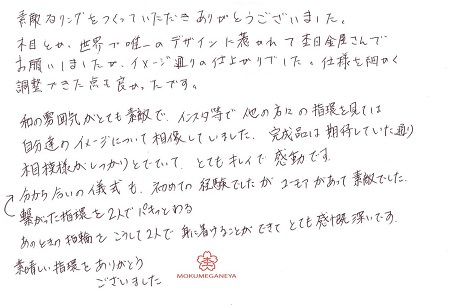 素敵なリングをつくっていただきありがとうございました。
木目とか、世界で唯一のデザインに惹かれて杢目金屋さんで
お願いしましたが、イメージ通りの仕上がりでした。仕様を細かく
調整できた点も良かったです。
和の雰囲気がとても素敵で、インスタ等で他の方の指環を見ては
自分達のイメージについて想像していました。完成品は期待していた通り
木目模様がしっかりとでていて、とてもキレイで感動です。
分かち合いの儀式も、初めての経験でしたがユーモアがあって素敵でした。
繋がった指環を2人でパキッとわる
あのときの指輪をこうして2人で身に着けることができてとても感慨深いです。
素晴しい指環をありがとう
ございました
MOKUMEGANEYA